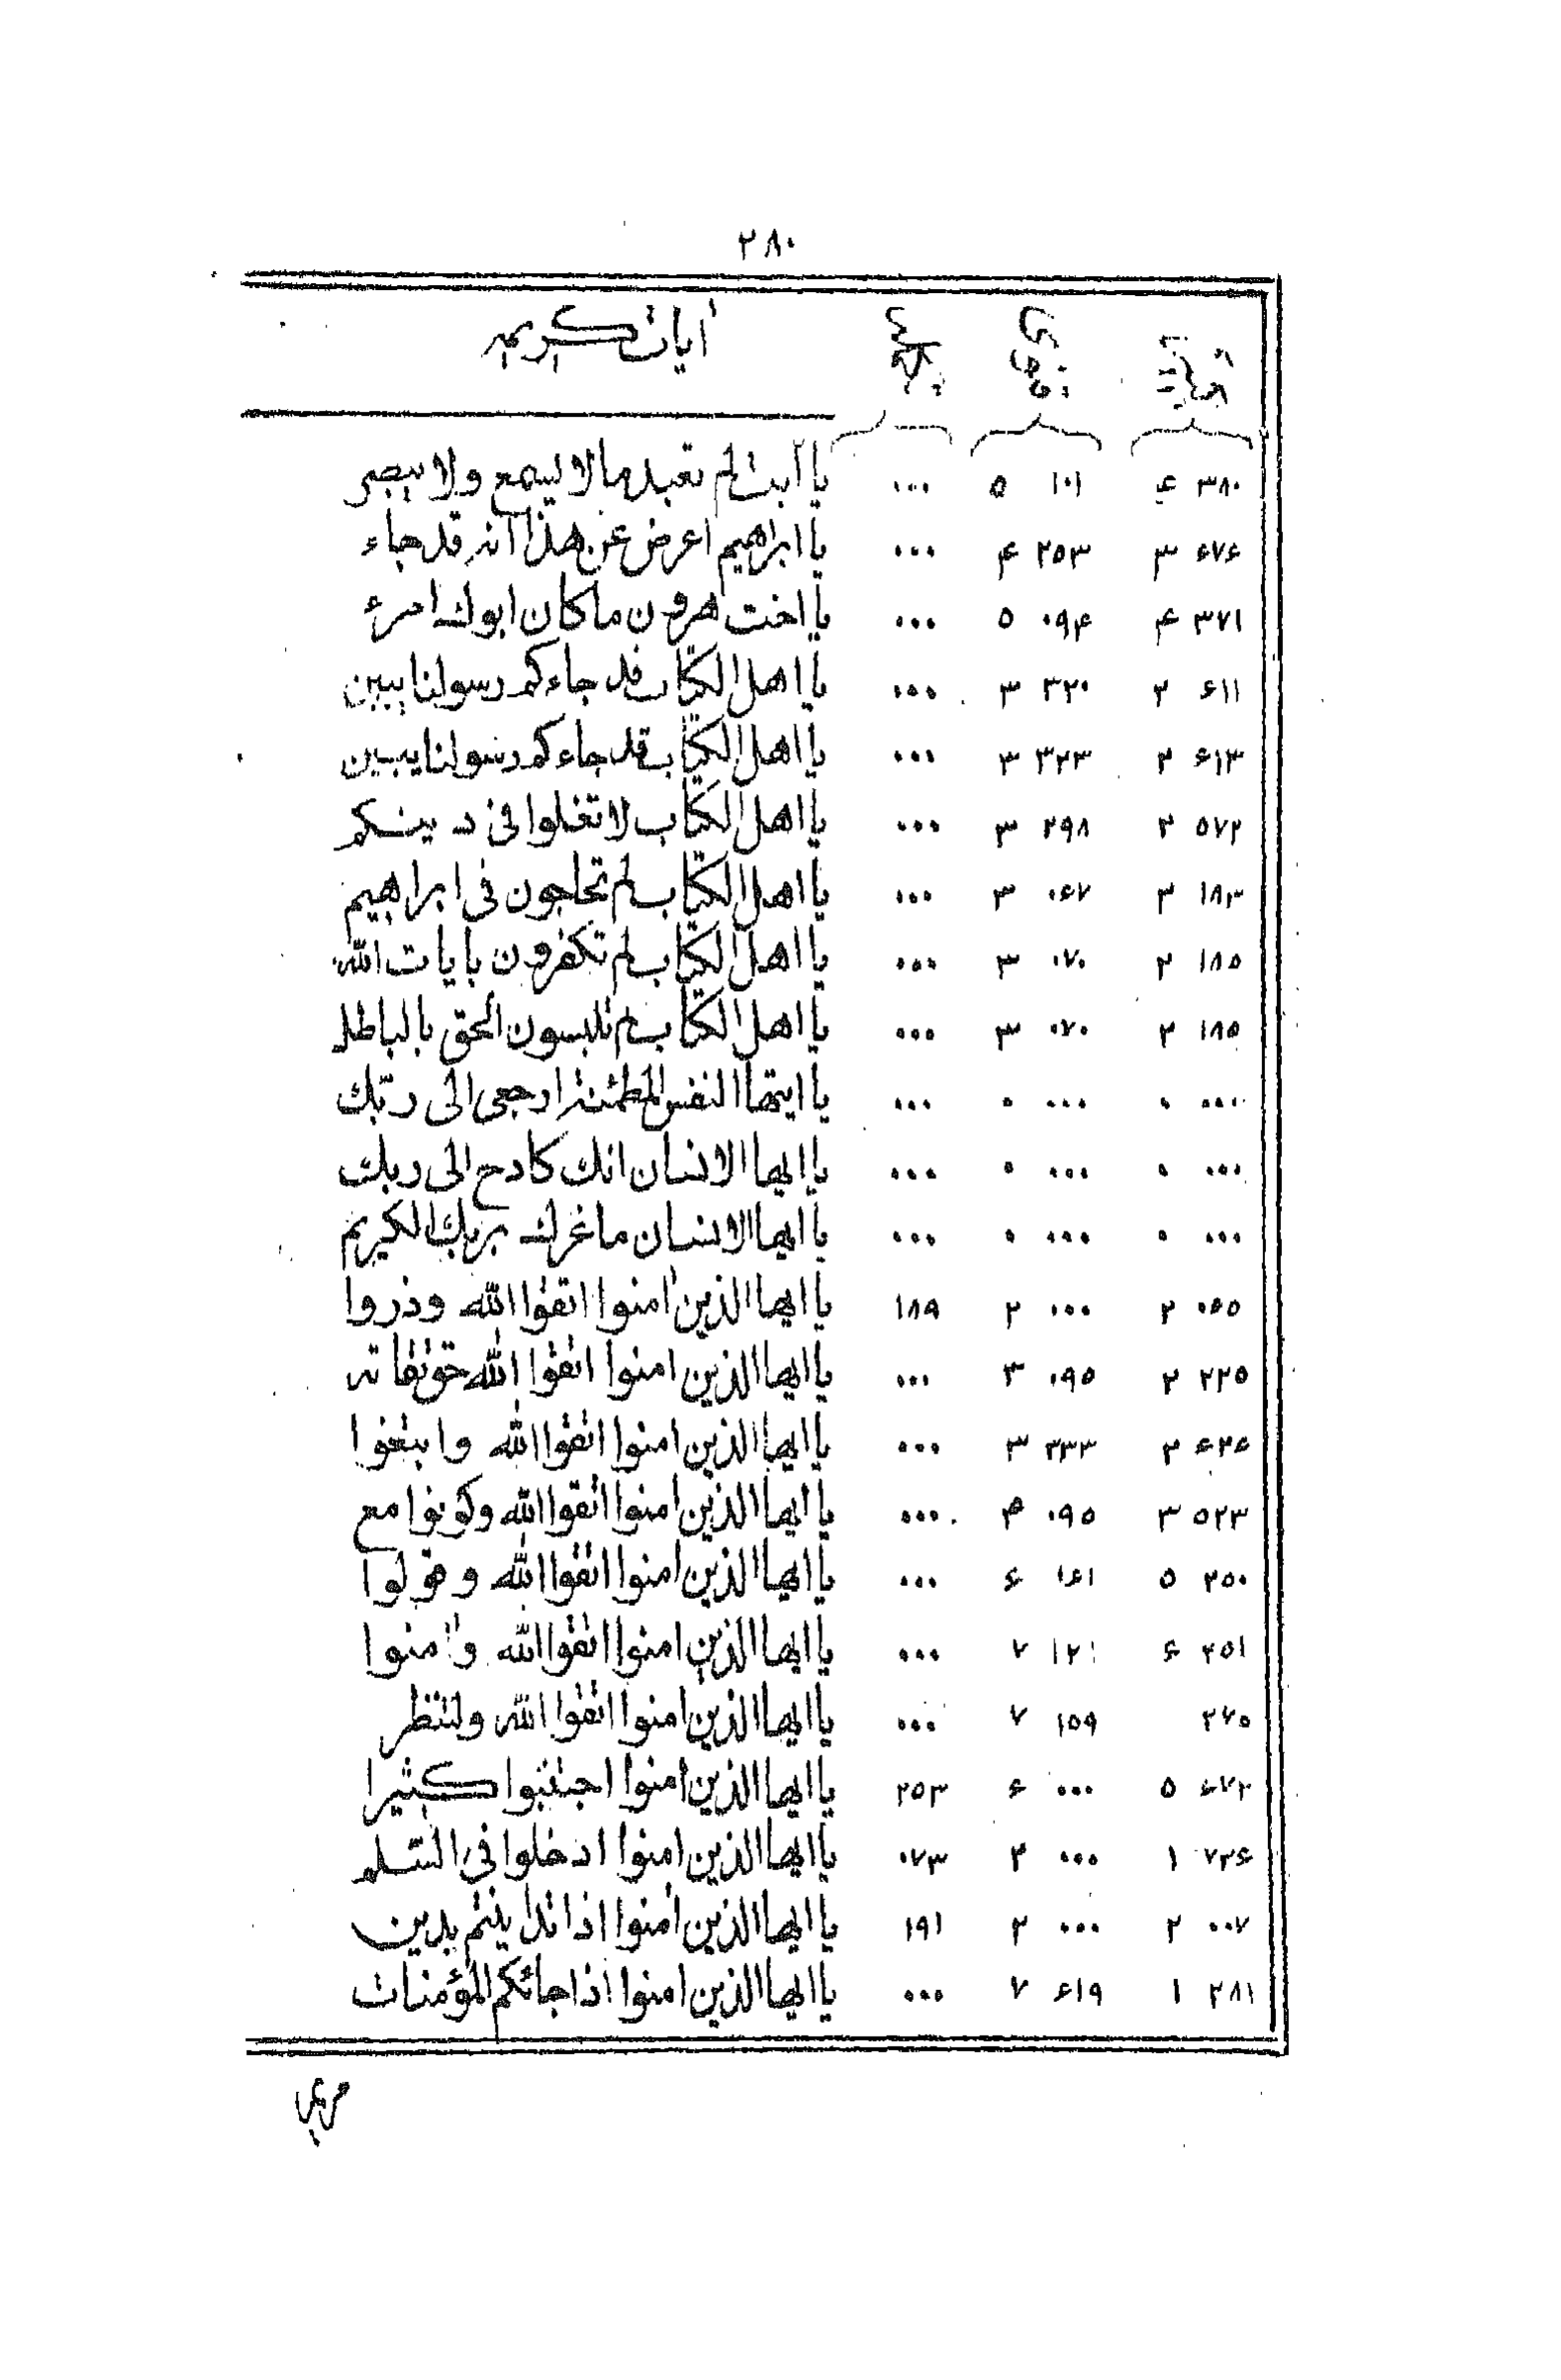 ۲۸۰
آیات کریمه
۳۸۰ ۴ ۱۰۱ ۵ ۰۰۰ یا ابت لم تعبد ما لا یسمع ولا یبصر
۶۷۶ ۳ ۲۵۳ ۴ ۰۰۰ یا ابراهیم اعرض عن هذا انه قد جاء
۳۷۱ ۴ ۰۹۴ ۵ ۰۰۰ یا اخت هرون ما کان ابوك امرء
۶۱۱ ۲ ۳۲۰ ۳ ۰۰۰ یا اهل الکتاب قد جاءکم رسولنا یبین
۶۱۳ ۲ ۳۲۳ ۳ ۰۰۰ یا اهل الکتاب قد جاءکم رسولنا یبین
۵۷۲ ۲ ۲۹۸ ۳ ۰۰۰ یا اهل الکتاب لا تغلوا فی دینکم
۱۸۳ ۲ ۰۶۷ ۳ ۰۰۰ یا اهل الکتاب لم تحاجون فی ابراهیم
۱۸۵ ۲ ۰۷۰ ۳ ۰۰۰ یا اهل الکتاب لم تکفرون بایات الله
۱۸۵ ۲ ۰۷۰ ۳ ۰۰۰ یا اهل الکتاب لم تلبسون الحق بالباطل
۰۰۰ ۰ ۰۰۰ ۰ ۰۰۰ یا ایتها النفس المطمئنة ارجعی الی ربّك
۰۰۰ ۰ ۰۰۰ ۰ ۰۰۰ یا ایها الانسان انك کادح الی ربك
۰۰۰ ۰ ۰۰۰ ۰ ۰۰۰ یا ایها الانسان ما غرك بربك الکریم
۰۶۵ ۲ ۰۰۰ ۲ ۱۸۹ یا ایها الذین امنوا اتقوا الله وذروا
۲۲۵ ۲ ۰۹۵ ۳ ۰۰۰ یا ایها الذین امنوا اتقوا الله حق تقاته
۶۲۶ ۲ ۳۳۳ ۳ ۰۰۰ یا ایها الذین امنوا اتقوا الله وابتغوا
۵۲۳ ۳ ۰۹۵ ۴ ۰۰۰ یا ایها الذین امنوا اتقوا الله وکونوا مع
۲۵۰ ۵ ۱۶۱ ۶ ۰۰۰ یا ایها الذین امنوا اتقوا الله وقولوا
۲۵۱ ۶ ۱۲۱ ۷ ۰۰۰ یا ایها الذین امنوا اتقوا الله وامنوا
۲۷۵ ۱۵۹ ۷ ۰۰۰ یا ایها الذین امنوا اتقوا الله ولتنظر
۶۷۲ ۵ ۰۰۰ ۶ ۲۵۳ یا ایها الذین امنوا اجتنبوا کثیرا
۷۳۶ ۱ ۰۰۰ ۲ ۰۷۳ یا ایها الذین امنوا ادخلوا فی السّلم
۰۰۷ ۲ ۰۰۰ ۲ ۱۹۱ یا ایها الذین امنوا اذا تداینتم بدین
۲۸۱ ۱ ۶۱۹ ۷ ۰۰۰ یا ایها الذین امنوا اذا جائکم المؤمنات